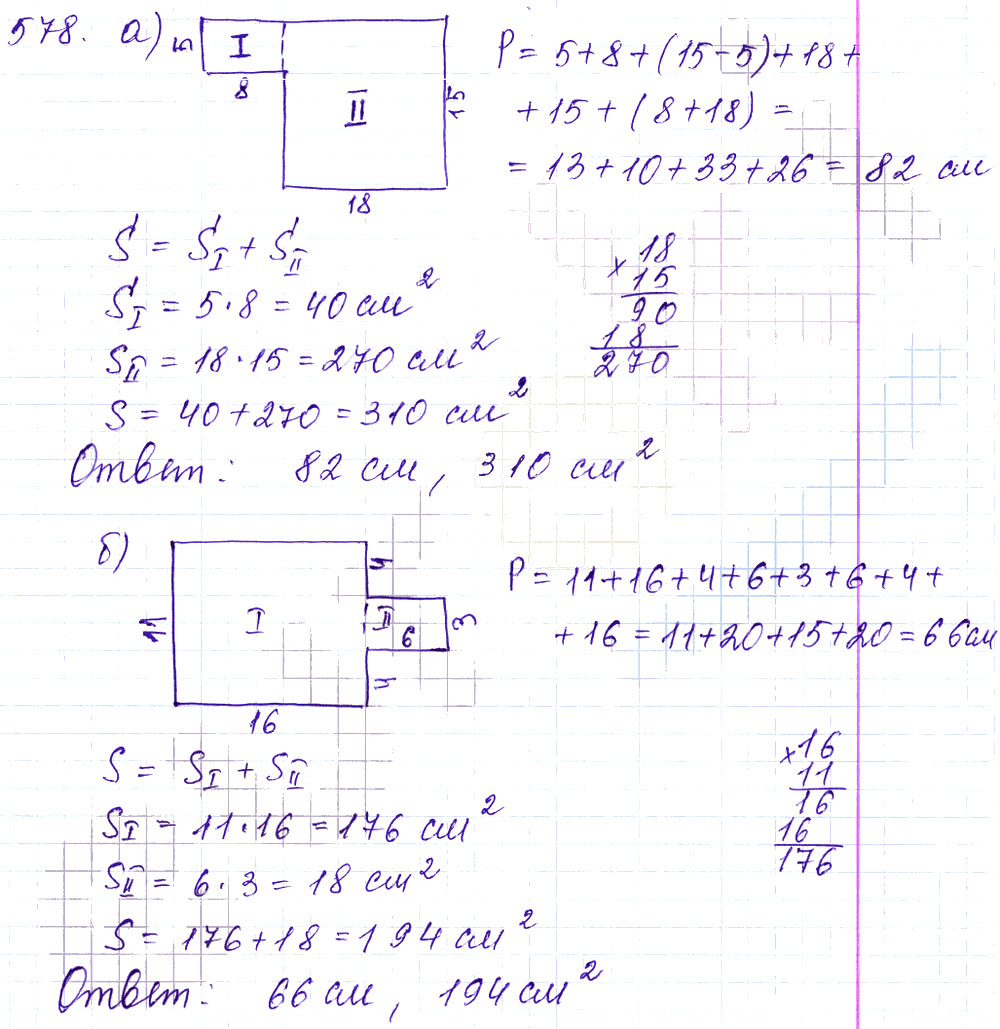 578. а) 5 I 8 II 15 18
P = 5+8+(15-5)+18+
+15+(8+18) =
= 13+10+33+26 = 82 см
S = S_I + S_II
S_I = 5·8 = 40 см²
S_II = 18·15 = 270 см²
S = 40+270 = 310 см²
×18
15
90
18
270
Ответ: 82 см, 310 см²
б) 11 I 16 4 II 6 3 4
P = 11+16+4+6+3+6+4+
+16 = 11+20+15+20 = 66см
S = S_I + S_II
S_I = 11·16 = 176 см²
S_II = 6·3 = 18 см²
S = 176+18 = 194 см²
×16
11
16
16
176
Ответ: 66 см, 194 см²